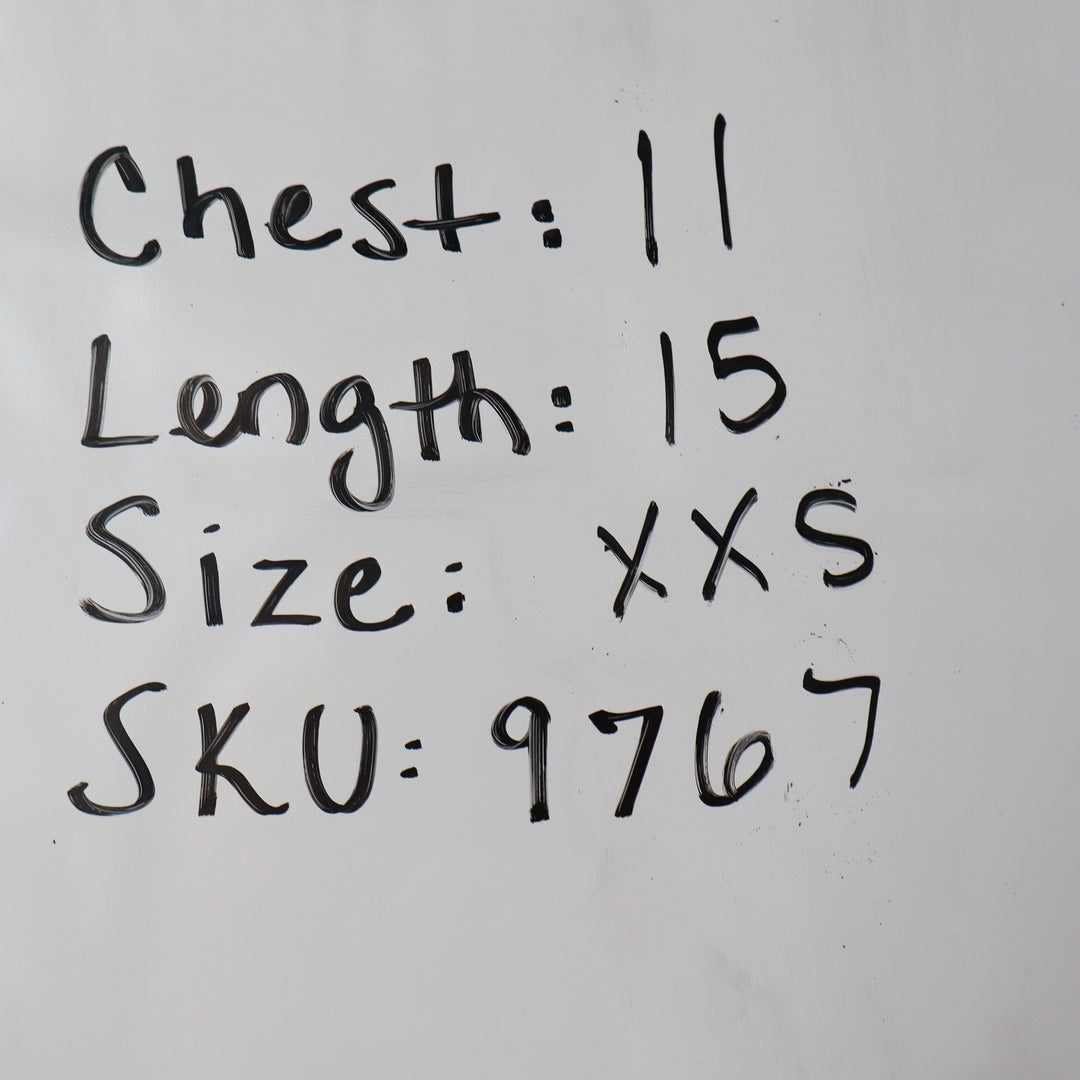 Chest: 11
Length: 15
Size: XXS
SKU: 9767